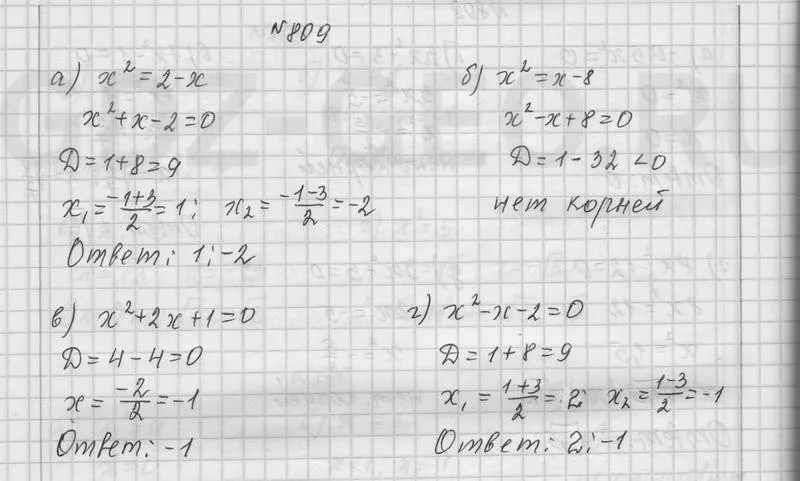 №809
а) x² = 2-x
x²+x-2=0
D=1+8=9
x₁ = (-1+3)/2 = 1; x₂ = (-1-3)/2 = -2
Ответ: 1; -2
б) x² = x-8
x²-x+8=0
D=1-32 <0
нет корней
в) x²+2x+1=0
D=4-4=0
x = -2/2 = -1
Ответ: -1
г) x²-x-2=0
D=1+8=9
x₁ = (1+3)/2 = 2; x₂ = (1-3)/2 = -1
Ответ: 2; -1